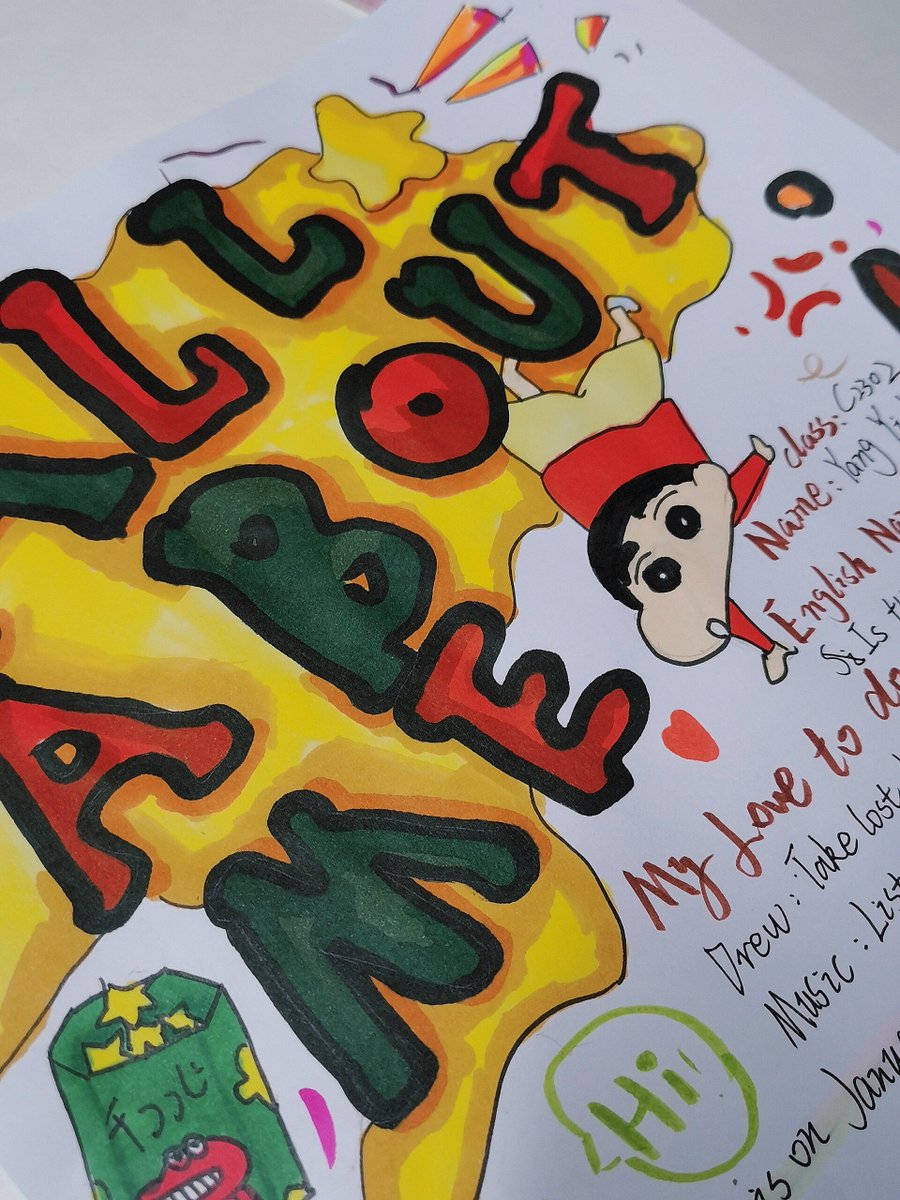 LL
ABOUT
ME
class: C2302
Name: Yang
English Na
Is
My Love to do
Drew: Take lost
Music: List
is on Janu
Hi
チココじ